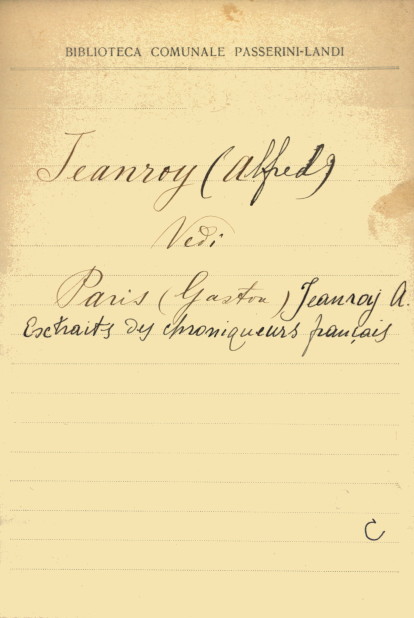 BIBLIOTECA COMUNALE PASSERINI-LANDI
Jeanroy (Alfred)
Vedi
Paris (Gaston) Jeanroy A.
Extraits des chroniqueurs français
C